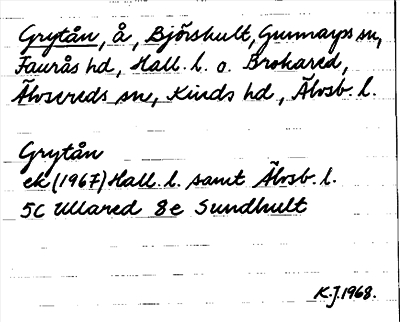 Grytån, å, Björshult, Gunnarps sn,
Faurås hd, Hall. l. o. Brokared,
Älvsereds sn, Kinds hd, Älvsb. l.
Grytån
ek (1967) Hall. l. samt Älvsb. l.
5C Ullared 8e Sundhult
K.J. 1968.